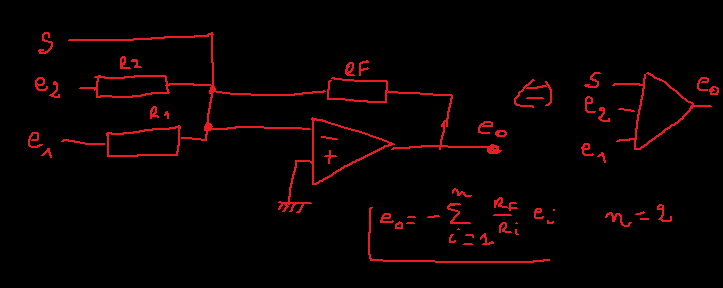 S
R2
e2
R1
e1
RF
-
+
e0
⇔
S
e2
e1
e0
e0 = - ∑_{i=1}^{n} RF/Ri ei n=2